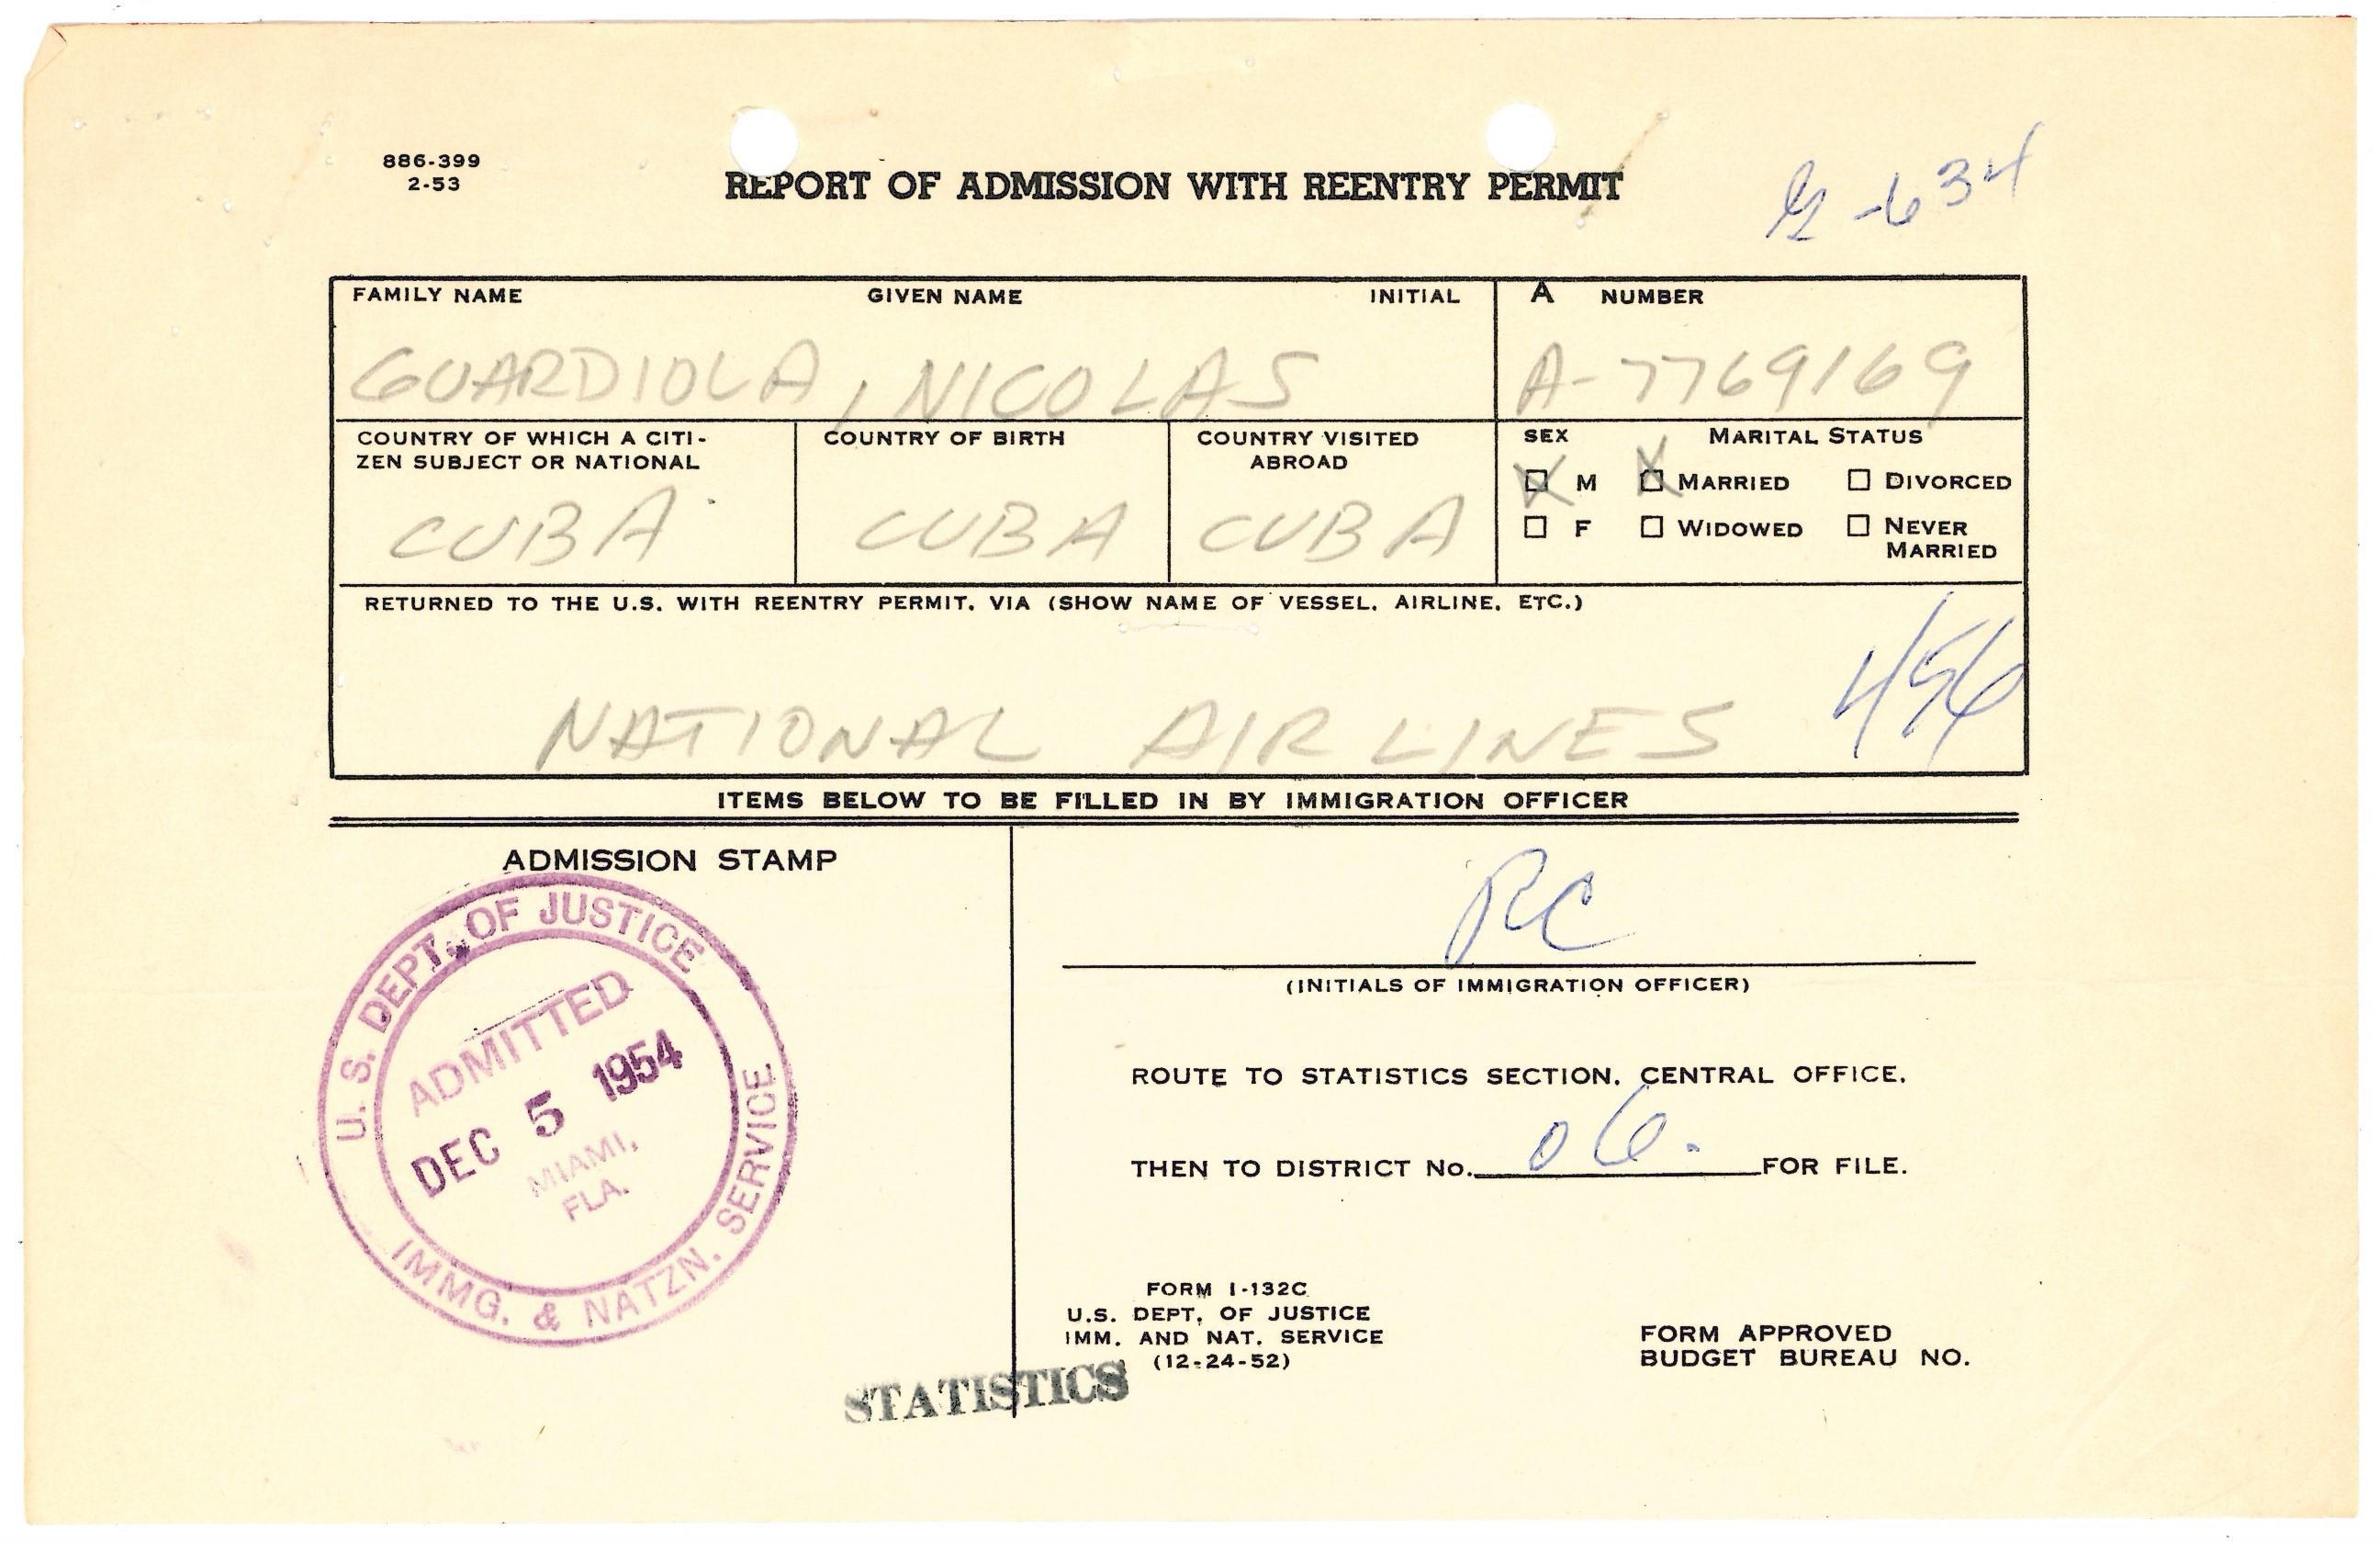 886-399
2-53
REPORT OF ADMISSION WITH REENTRY PERMIT
-634
FAMILY NAME GIVEN NAME INITIAL A NUMBER
GUARDIOLA, NICOLAS A-7769169
COUNTRY OF WHICH A CITI-
ZEN SUBJECT OR NATIONAL
CUBA
COUNTRY OF BIRTH
CUBA
COUNTRY VISITED
ABROAD
CUBA
SEX MARITAL STATUS
X M X MARRIED ☐ DIVORCED
☐ F ☐ WIDOWED ☐ NEVER
MARRIED
RETURNED TO THE U.S. WITH REENTRY PERMIT, VIA (SHOW NAME OF VESSEL, AIRLINE, ETC.)
NATIONAL AIRLINES
456
ITEMS BELOW TO BE FILLED IN BY IMMIGRATION OFFICER
ADMISSION STAMP
U. S. DEPT. OF JUSTICE
ADMITTED
DEC 5 1954
MIAMI,
FLA.
IMMG. & NATZN. SERVICE
RC
(INITIALS OF IMMIGRATION OFFICER)
ROUTE TO STATISTICS SECTION, CENTRAL OFFICE,
THEN TO DISTRICT No. 06. FOR FILE.
FORM I-132C
U.S. DEPT. OF JUSTICE
IMM. AND NAT. SERVICE
(12-24-52)
FORM APPROVED
BUDGET BUREAU NO.
STATISTICS